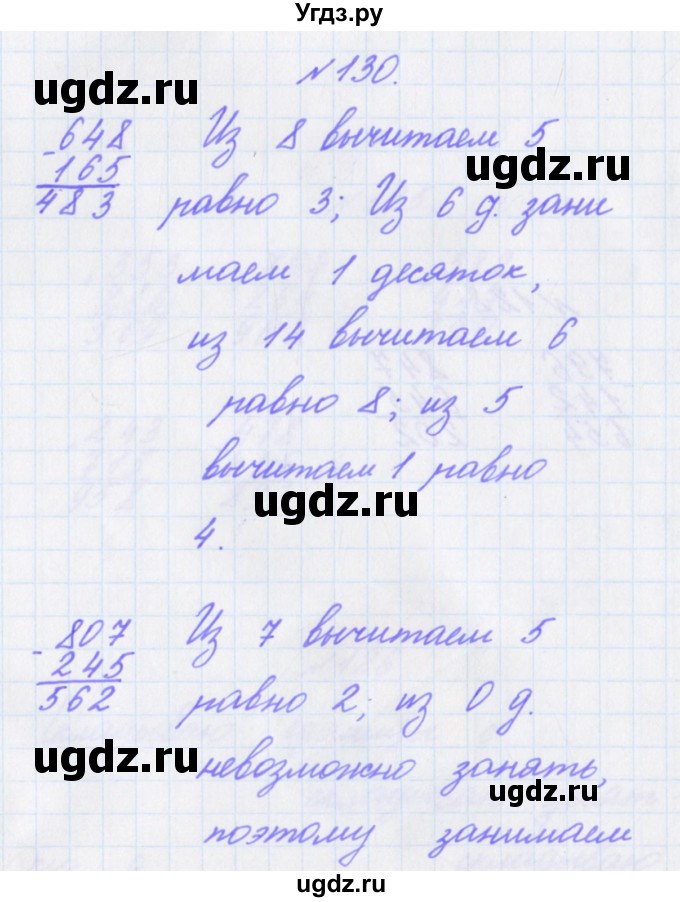 Угдз.ру
№130.
ugdz.ru
-648 Из 8 вычитаем 5
165
ugdz.ru
483 равно 3; Из 6 д. зани
маем 1 десяток,
из 14 вычитаем 6
равно 8; из 5
вычитаем 1 равно
ugdz.ru
4.
-807 Из 7 вычитаем 5
245
562 равно 2; из 0 д.
ugdz.ru
невозможно занять,
ugdz.ru
поэтому занимаем
ugdz.ru